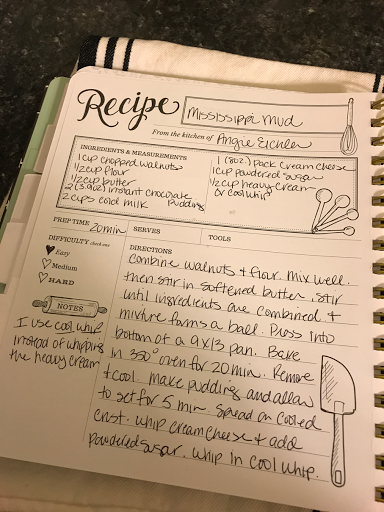 Recipe
Mississippi Mud
From the kitchen of Angie Eichler
INGREDIENTS & MEASUREMENTS
1 cup chopped walnuts
1/2 cup flour
1/2 cup butter
2 (3.9oz) instant chocolate
pudding
2 cups cold milk
1 (8oz) pack cream cheese
1 cup powdered sugar
1/2 cup heavy cream
or cool whip
PREP TIME 20min
SERVES
TOOLS
DIFFICULTY check one
Easy
Medium
HARD
NOTES
I use cool whip
instead of whipping
the heavy cream
DIRECTIONS
combine walnuts + flour. mix well.
then stir in softened butter. stir
until ingredients are combined +
mixture forms a ball. Press into
bottom of a 9x13 pan. Bake
in 350° oven for 20 min. Remove
+ cool. make pudding and allow
to set for 5 min. Spread on cooled
crust. whip cream cheese + add
powdered sugar. whip in cool whip.